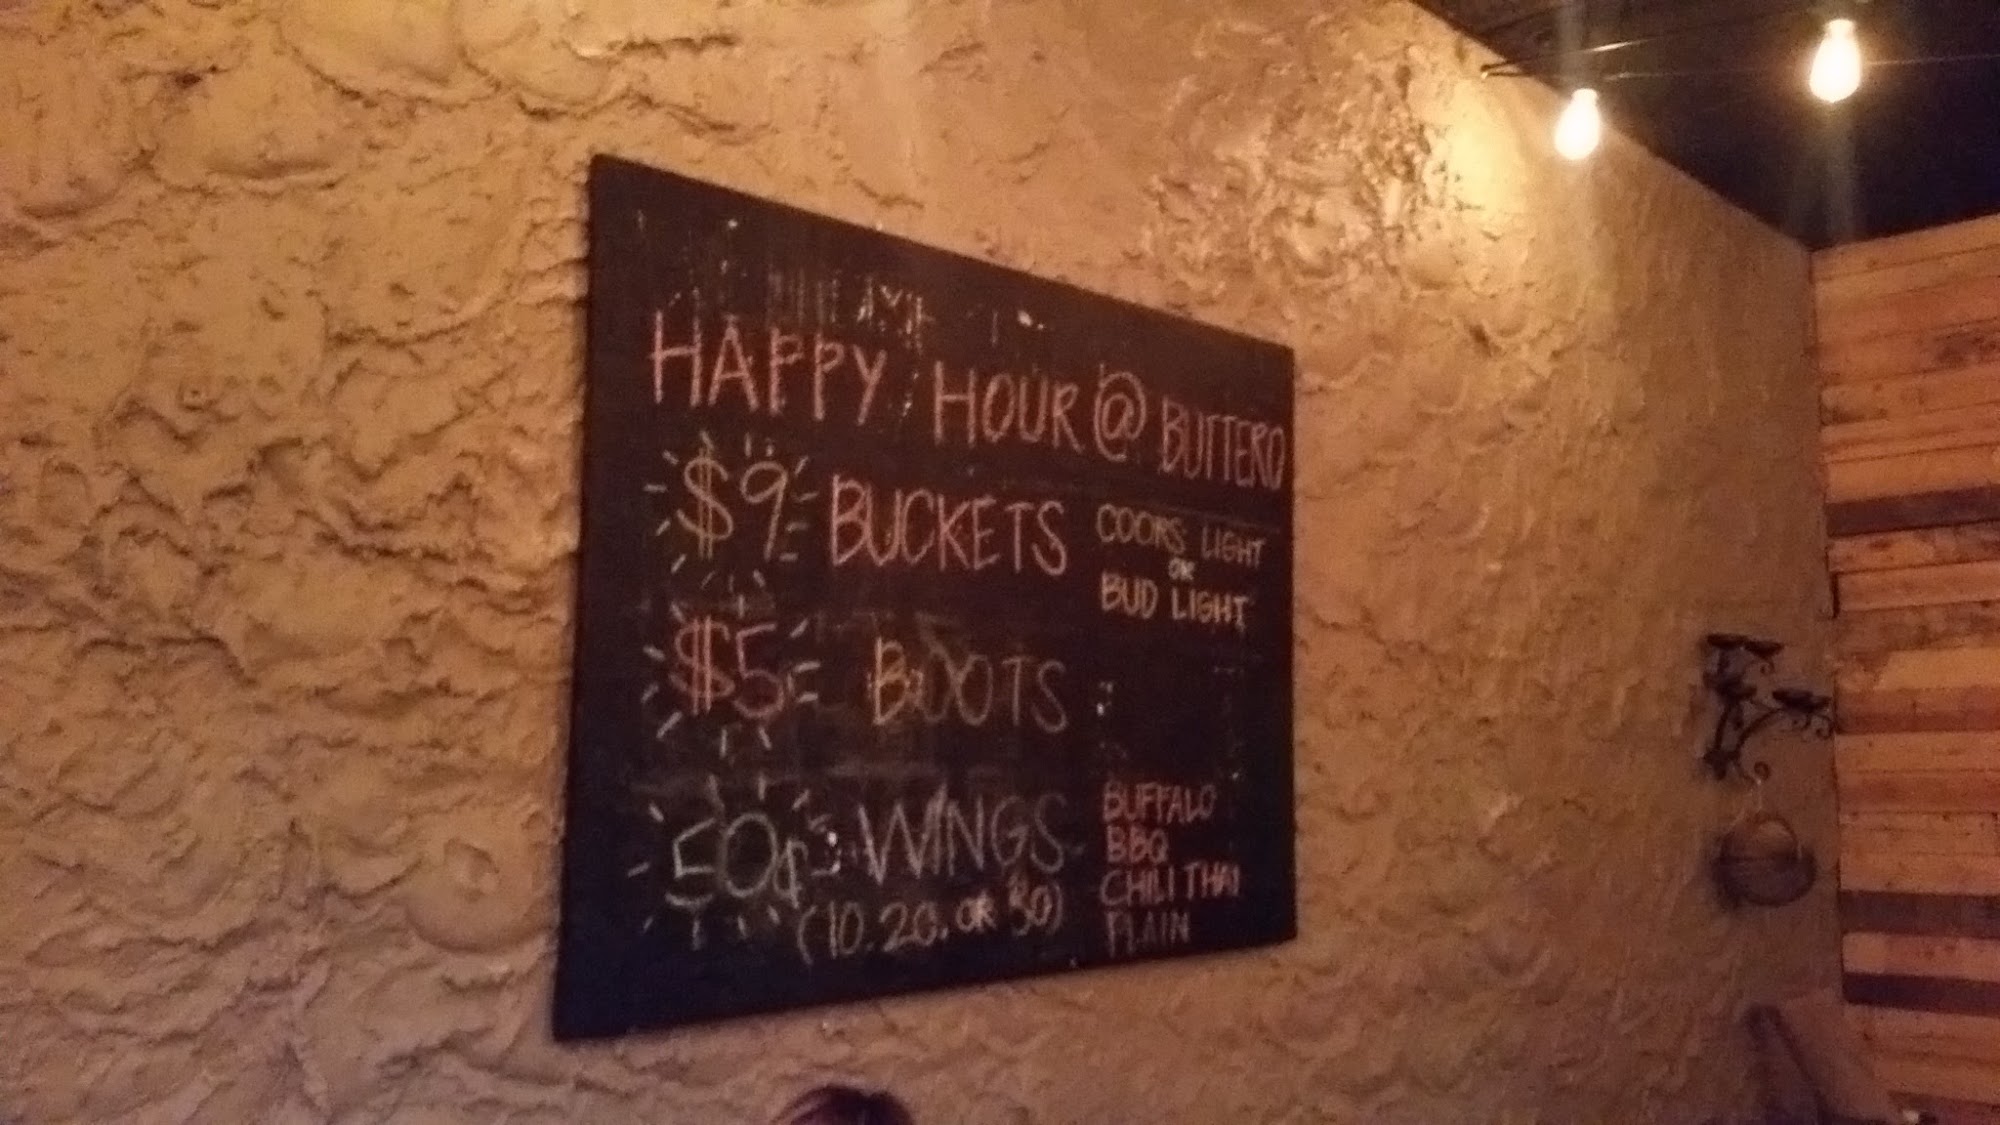 HAPPY HOUR @ BUTTERO
$9 BUCKETS
COORS LIGHT
OR
BUD LIGHT
$5 BOOTS
50¢ WINGS
(10. 20. OR 30)
BUFFALO
BBQ
CHILI THAI
PLAIN